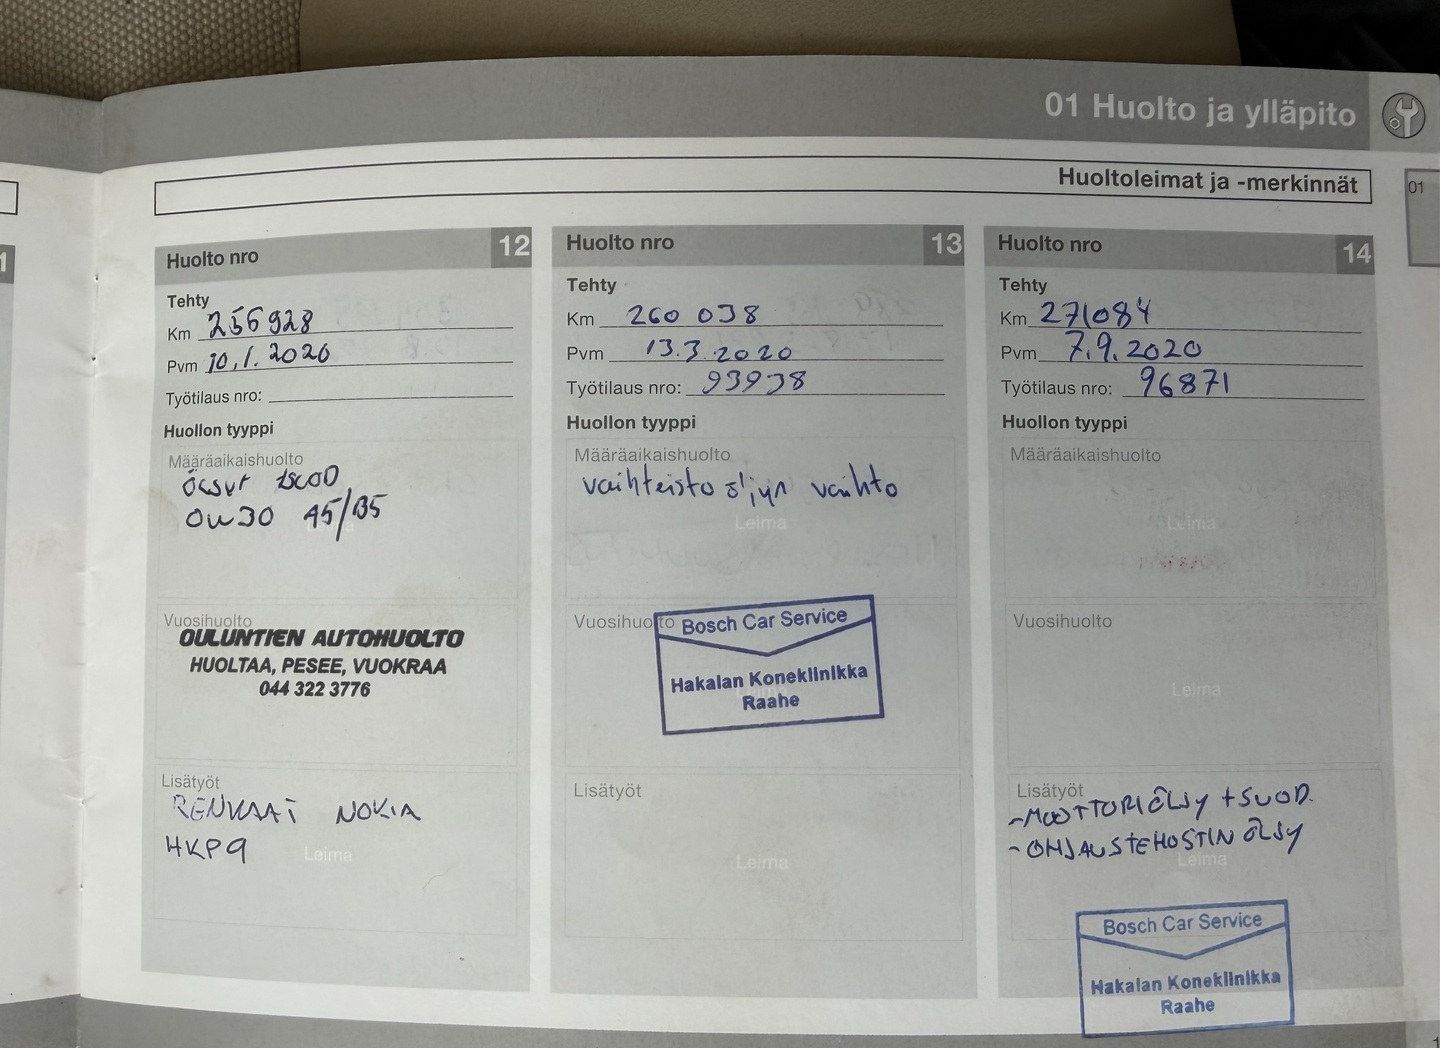 01 Huolto ja ylläpito
Huoltoleimat ja -merkinnät
01
1
Huolto nro 12
Tehty
Km 256928
Pvm 10.1.2020
Työtilaus nro:
Huollon tyyppi
Määräaikaishuolto
0W30 A5/B5
Vuosihuolto
OULUNTIEN AUTOHUOLTO
HUOLTAA, PESEE, VUOKRAA
044 322 3776
Lisätyöt
RENKAAT NOKIA
HKP9
Leima
Huolto nro 13
Tehty
Km 260 038
Pvm 13.3.2020
Työtilaus nro: 93938
Huollon tyyppi
Määräaikaishuolto
vaihteisto öljyn vaihto
Leima
Vuosihuolto
Bosch Car Service
Hakalan Koneklinikka
Raahe
Lisätyöt
Leima
Huolto nro 14
Tehty
Km 271084
Pvm 7.9.2020
Työtilaus nro: 96871
Huollon tyyppi
Määräaikaishuolto
Leima
Vuosihuolto
Leima
Lisätyöt
-MOOTTORIÖLJY + SUOD.
-OHJAUSTEHOSTIN ÖLJY
Leima
Bosch Car Service
Hakalan Koneklinikka
Raahe